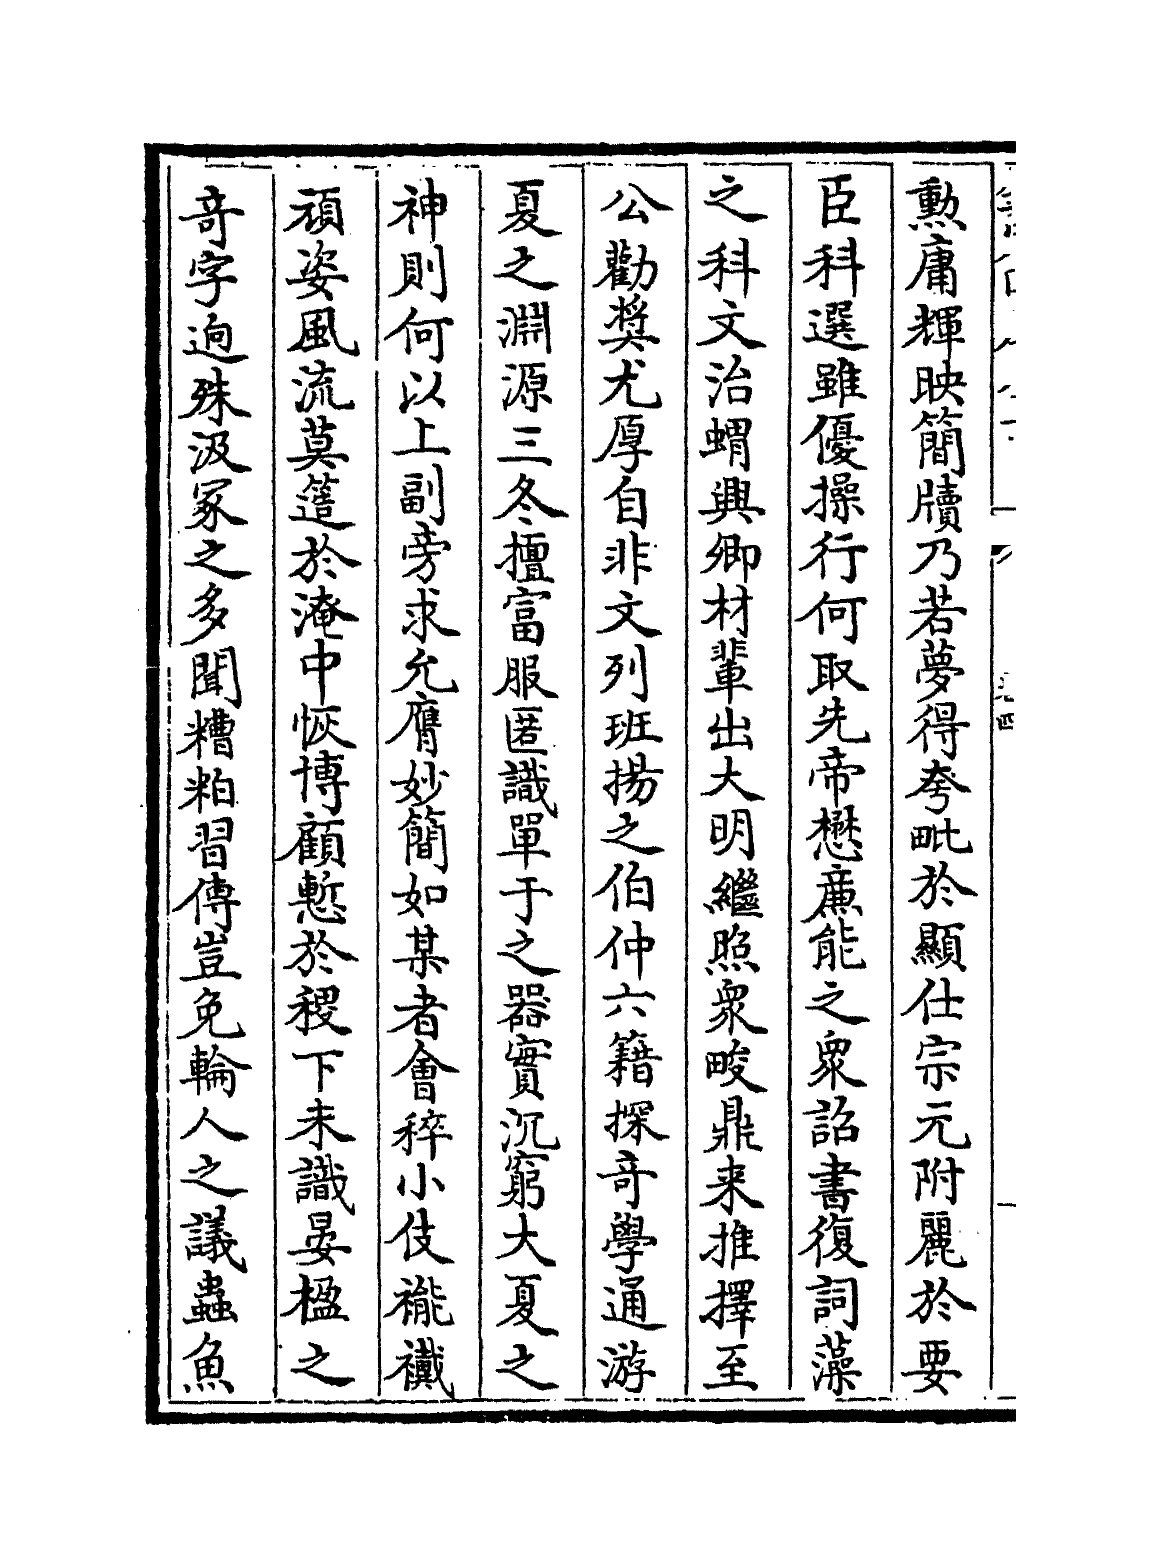 勲庸輝映簡牘乃若夢得夸毗於顯仕宗元附麗於要
臣科選雖優操行何取先帝懋亷能之衆詔書復詞藻
之科文治蝟興卿材輩出大明繼照衆畯鼎来推擇至
公勸奨尤厚自非文列班揚之伯仲六籍探竒學通游
夏之淵源三冬擅富服匿識單于之器實沉窮大夏之
神則何以上副旁求允膺妙簡如某者會稡小伎褦襶
頑姿風流莫簉於淹中恢博顧慙於稷下未識晏楹之
竒字逈殊汲冢之多聞糟粕習傳豈免輪人之議蟲魚